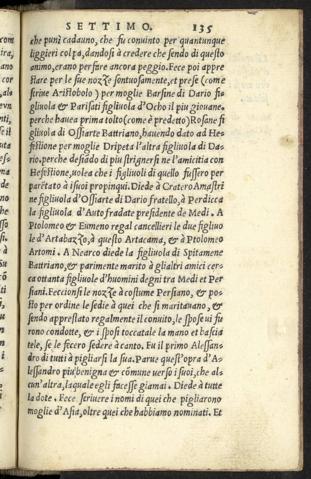 SETTIMO. 135
che punì cadauno, che fu conuinto per quantunque
liggieri colpa, dandosi à credere che sendo di questo
animo, erano per fare ancora peggio. Fece poi appre
stare per le sue nozze sontuosamente, et prese (come
scriue Aristobolo) per moglie Barsine di Dario fi
gliuola & Parisati figliuola d'Ocho il piu giouane.
perche hauea prima tolto (come è predetto) Rosane fi
gliuola di Ossiarte Battriano, hauendo dato ad He
festione per moglie Dripeta l'altra figliuola di Da-
rio. perche desiādo di piu strignersi ne l'amicitia con
Hefestione, uolea che i figliuoli di quello fussero per
parētato à i suoi propinqui. Diede à Cratero Amastri
ne figliuola d'Ossiarte di Dario fratello, à Perdicca
la figliuola d'Autofradate presidente de Medi. A
Ptolomeo & Eumeno regal cancellieri le due figliuo
le d'Artabazzo, à questo Artacama, & à Ptolomeo
Artomi. A Nearco diede la figliuola di Spitamene
Battriano, & parimente maritò à gli altri amici cer-
ca ottanta figliuole d'huomini degni tra Medi et Per
siani. Feccionsi le nozze à costume Persiano, & po-
sto per ordine le sedie à quei che si maritauano, &
sendo apprestato regalmente il conuito, le spose ui fu
rono condotte, & i sposi toccatale la mano et bascia
tele, se le fecero sedere à canto. Fu il primo Alessan-
dro di tutti à pigliarsi la sua. Parue quest'opra d'A-
lessandro piu benigna & cōmune uerso i suoi, che al-
cun'altra, laquale egli facesse giamai. Diede à tutte
la dote. Fece scriuere i nomi di quei che pigliarono
moglie d'Asia, oltre quei che habbiamo nominati. Et